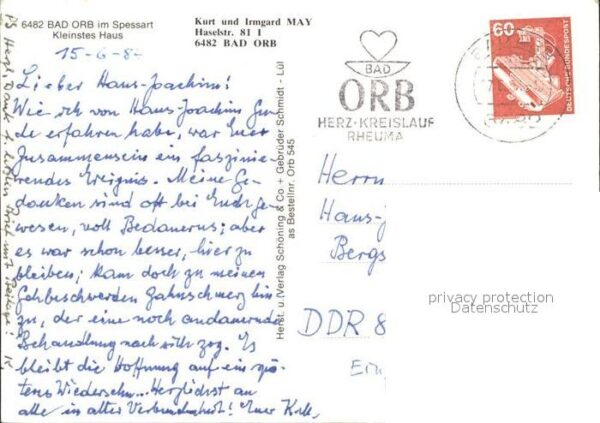 6482 BAD ORB im Spessart
Kleinstes Haus
Kurt und Irmgard MAY
Haselstr. 81 I
6482 BAD ORB
15-6-8-
Lieber Hans-Joachim!
Wie ich von Hans-Joachim Gu-
de erfahren habe, war Euer
Zusammensein ein faszinie-
rendes Ereignis. Meine Ge-
danken sind oft bei Euch ge-
wesen, voll Bedauerns; aber
es war schon besser, hier zu
bleiben; kam doch zu meinen
Gehbeschwerden Zahnschmerz hin-
zu, der eine noch andauernde
Behandlung nach sich zog. Es
bleibt die Hoffnung auf ein spä-
teres Wiedersehn... Herzlichst an
alle in alter Verbundenheit! Euer
PS Herzl. Dank f. letzten Brief mit Beilage!
Herst. u. Verlag Schöning & Co + Gebrüder Schmidt - Lü
as Bestellnr. Orb 545
BAD
ORB
HERZ·KREISLAUF
RHEUMA
60
DEUTSCHE BUNDESPOST
Herrn
Hans-
Bergs
DDR 8
privacy protection
Datenschutz